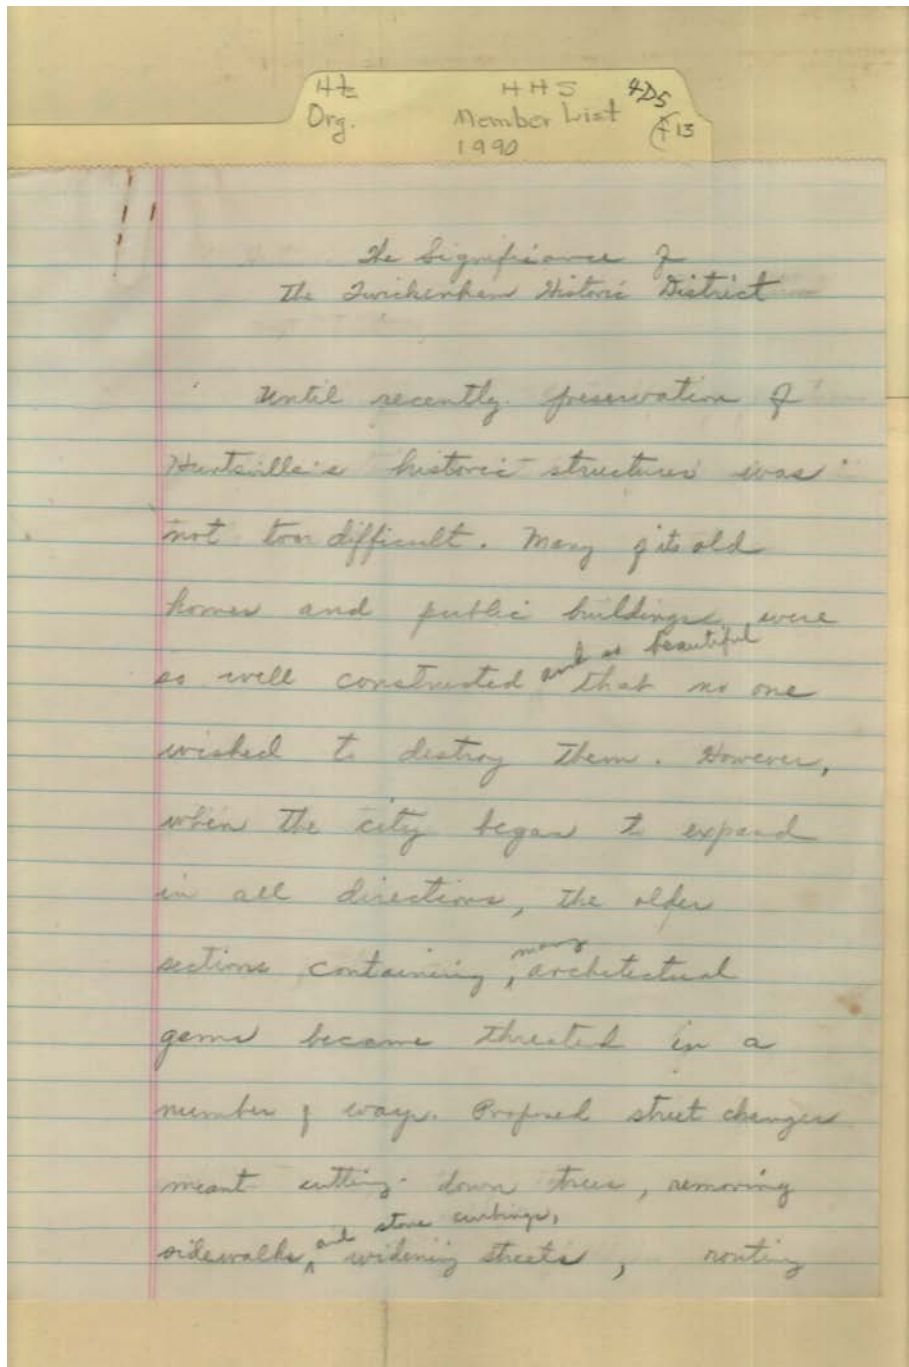 Hts HHS 4D5
Org. Member List F13
1990
The Significance of
The Twickenham Historic District
Until recently preservation of
Huntsville's historic structures was
not too difficult. Many of its old
homes and public buildings were
and so beautiful
so well constructed that no one
wished to destroy them. However,
when the city began to expand
in all directions, the older
many
sections containing, architectural
gems became threated in a
number of ways. Proposed street changes
meant cutting down trees, removing
and stone curbings,
sidewalks, widening streets, routing